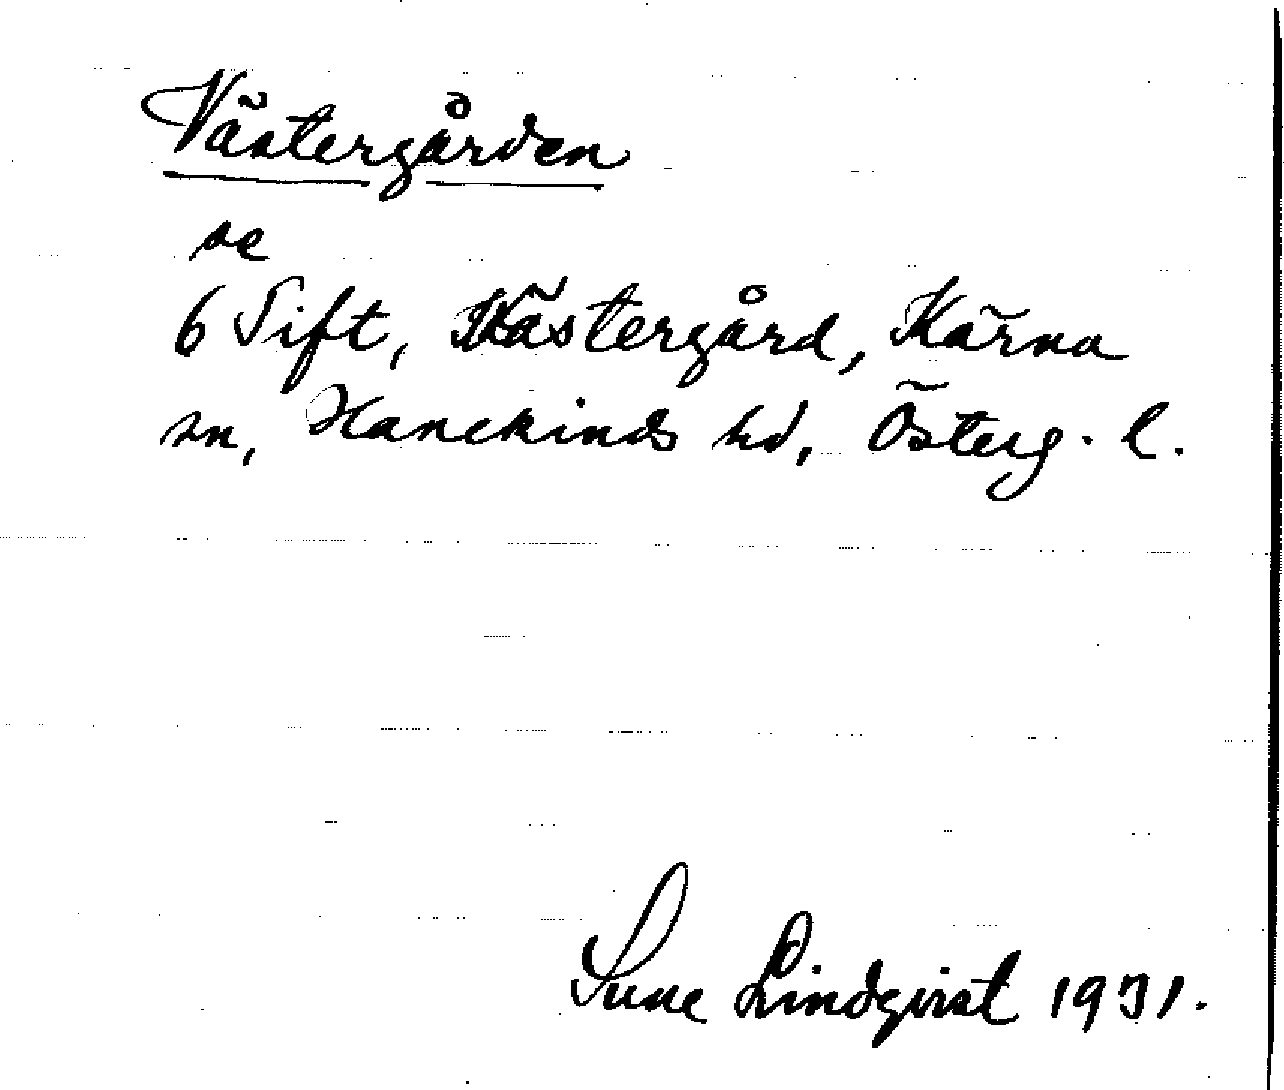 Västergården
se
6 Tift, Västergård, Kärna
sn, Hanekinds hd, Österg. l.
Sune Lindqvist 1931.